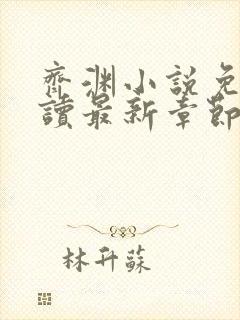 齊渊小說免
讀最新章節
林升蘇